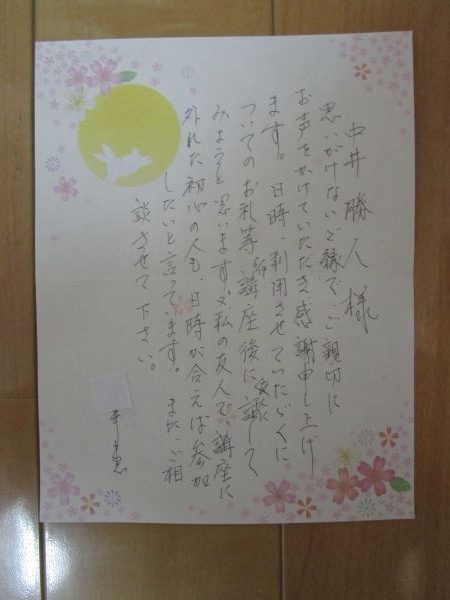 中井勝人様
思いがけないご縁で、ご親切に
お声をかけていただき感謝申し上げ
ます。日時、利用させていただくに
ついてのお礼等、講座後に話して
みようと思います。又私の友人で、講座に
外れた初心の人も、日時が合えば参加
したいと言っています。また、ご相
談させて下さい。